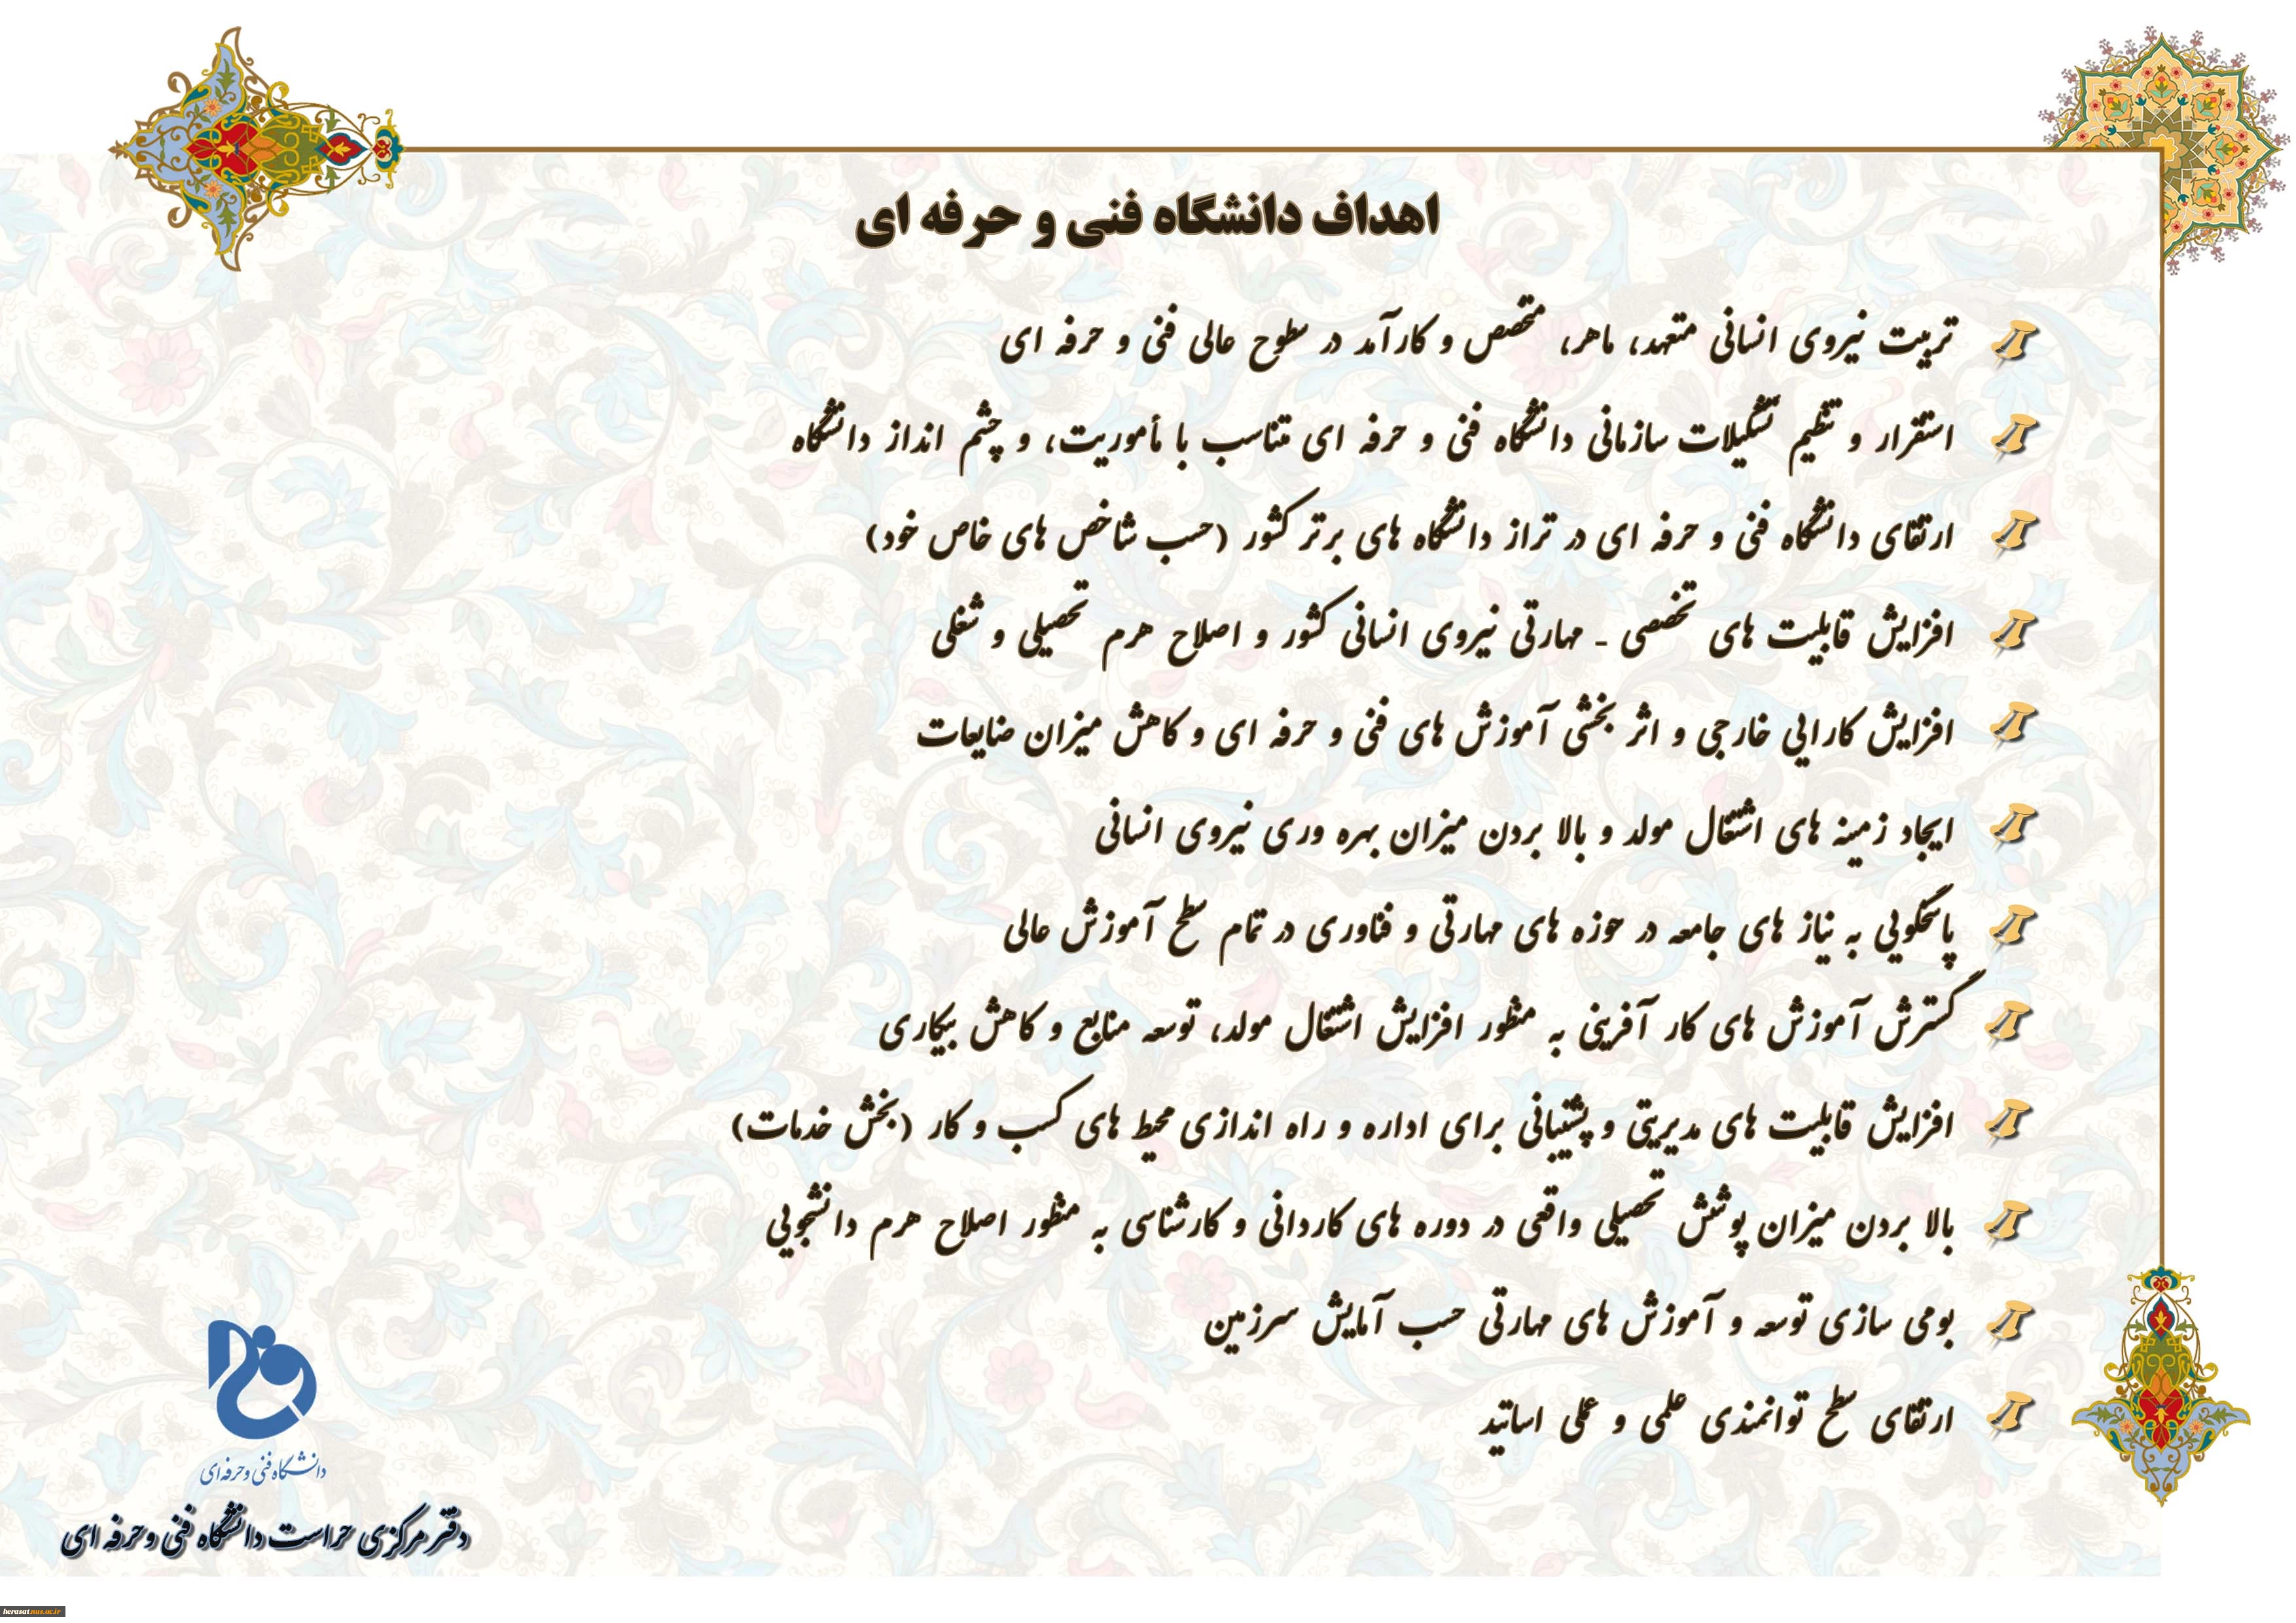 اهداف دانشگاه فنی و حرفه ای
تربیت نیروی انسانی متعهد، ماهر، متخصص و کارآمد در سطوح عالی فنی و حرفه ای
استقرار و تنظیم تشکیلات سازمانی دانشگاه فنی و حرفه ای متناسب با مأموریت، و چشم انداز دانشگاه
ارتقای دانشگاه فنی و حرفه ای در تراز دانشگاه های برتر کشور (حسب شاخص های خاص خود)
افزایش قابلیت های تخصصی - مهارتی نیروی انسانی کشور و اصلاح هرم تحصیلی و شغلی
افزایش کارایی خارجی و اثر بخشی آموزش های فنی و حرفه ای و کاهش میزان ضایعات
ایجاد زمینه های اشتغال مولد و بالا بردن میزان بهره وری نیروی انسانی
پاسخگویی به نیاز های جامعه در حوزه های مهارتی و فناوری در تمام سطح آموزش عالی
گسترش آموزش های کار آفرینی به منظور افزایش اشتغال مولد، توسعه منابع و کاهش بیکاری
افزایش قابلیت های مدیریتی و پشتیبانی برای اداره و راه اندازی محیط های کسب و کار (بخش خدمات)
بالا بردن میزان پوشش تحصیلی واقعی در دوره های کاردانی و کارشناسی به منظور اصلاح هرم دانشجویی
بومی سازی توسعه و آموزش های مهارتی حسب آمایش سرزمین
ارتقای سطح توانمندی علمی و عملی اساتید
دانشگاه فنی و حرفه‌ای
دفتر مرکزی حراست دانشگاه فنی و حرفه ای
herasat.nus.ac.ir